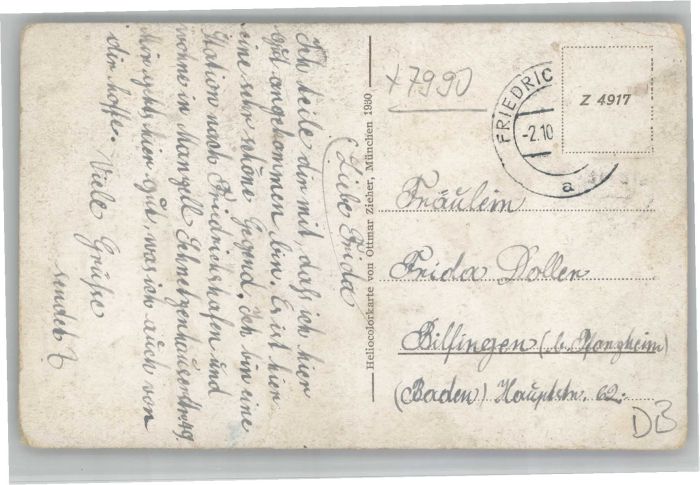 (Liebe Frida
Ich teile dir mit, daß ich hier
gut angekommen bin. Es ist hier
eine sehr schöne Gegend. Ich bin eine
Station nach Friedrichshafen und
wohne in Manzell
Mir gehts hier gut, was ich auch von
dir hoffe.
Viele Grüße
sendet
Heliocolorkarte von Ottmar Zieher, München 1930
+7990
FRIEDRIC
-2.10
a
Z 4917
Fräulein
Frida Doller
Bilfingen (b. Pforzheim)
(Baden) Hauptstr. 62.
DB